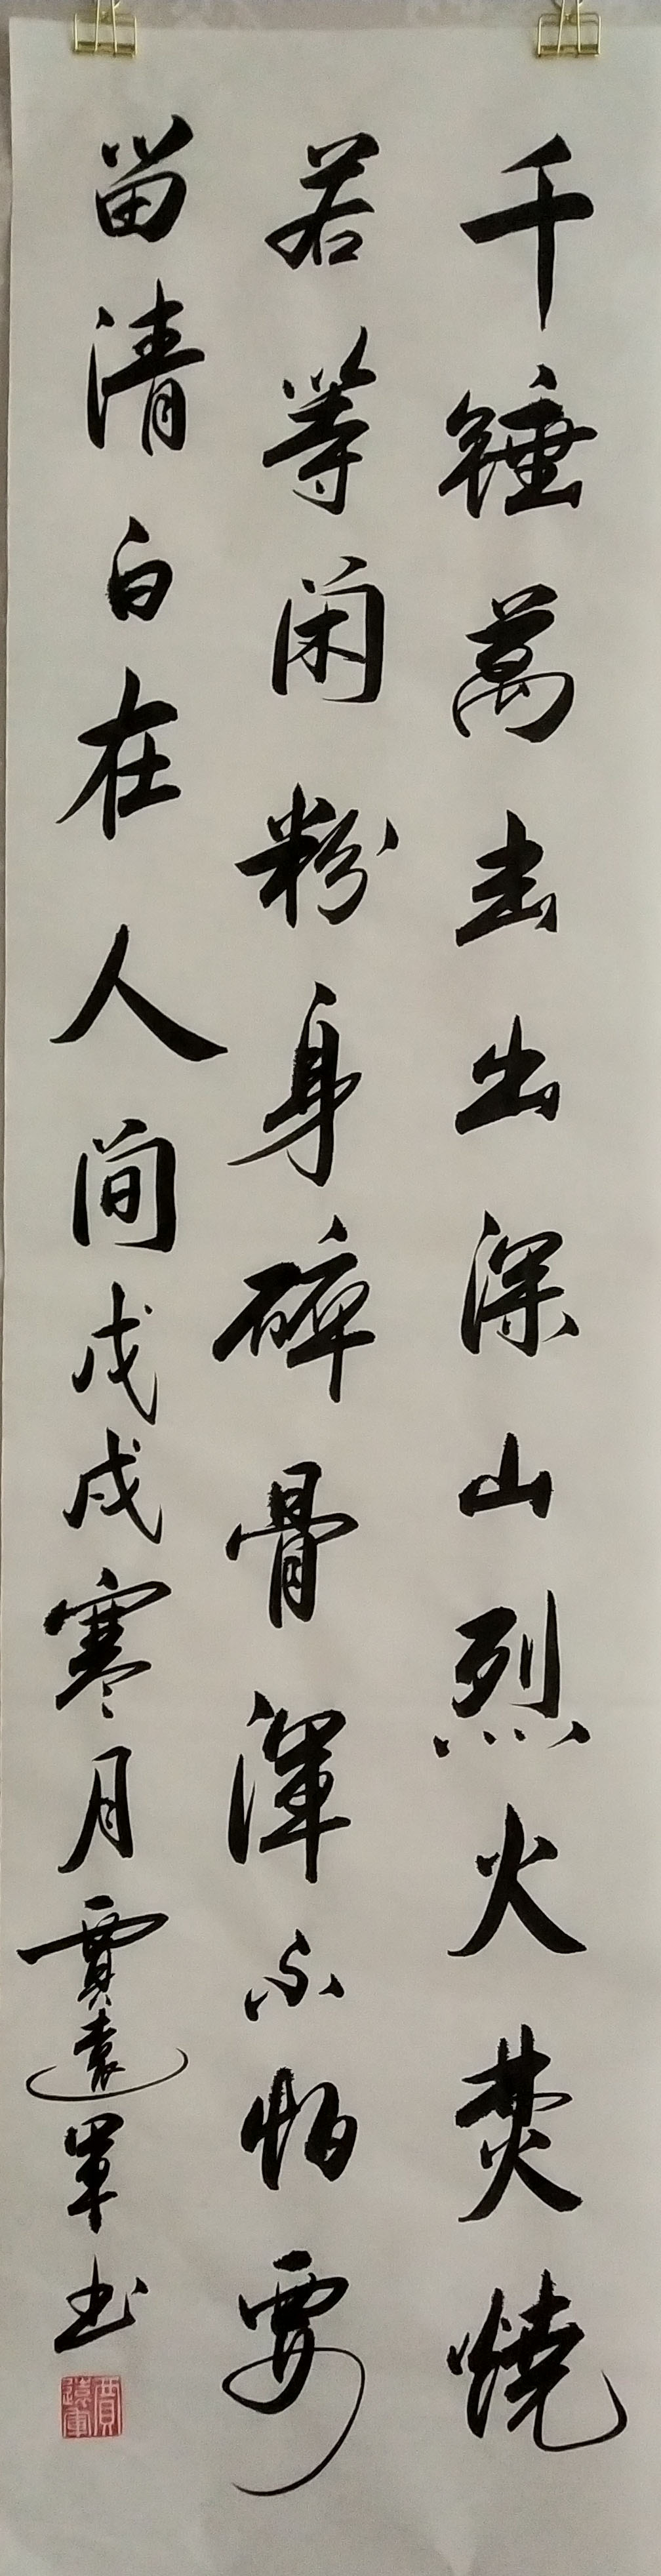 千锤萬击出深山烈火焚燒
若等闲粉身碎骨渾不怕要
留清白在人间戊戌寒月賈遠军书
賈遠軍